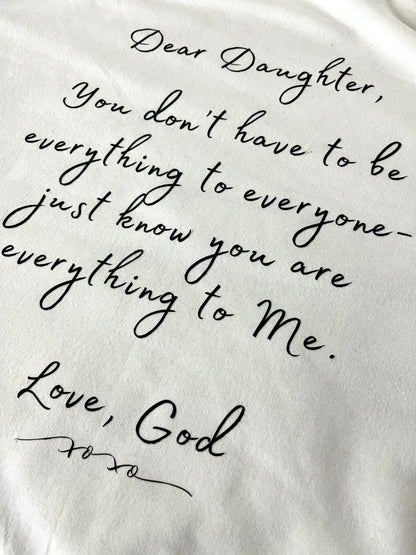 Dear Daughter,
You don't have to be
everything to everyone-
just know you are
everything to Me.
Love, God
xoxo